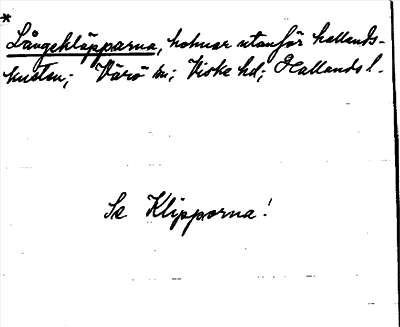 *
Långeklåpparna, holmar utanför hallands-
kusten; Värö sn; Viske hd; Hallands l.
Se Klipporna!